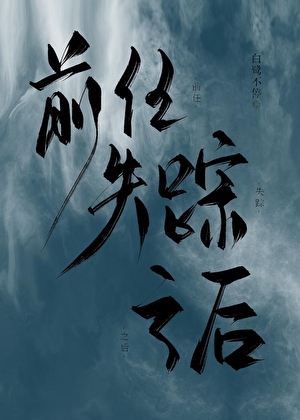 前任
失踪
之后
白鹭不停©
前任、
失踪
之后